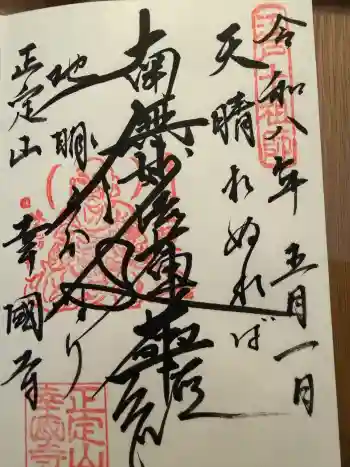 令和八年 五月一日
天晴れぬれば
南無妙法蓮華経
地明かなり
正定山 幸國寺
正定山
幸國寺